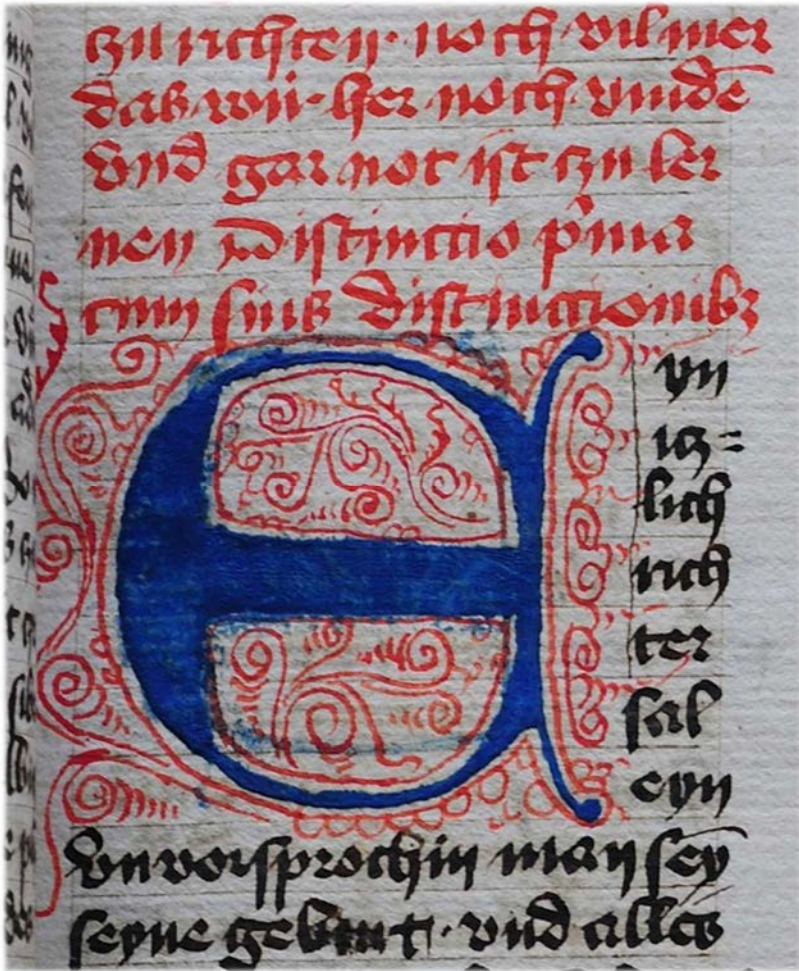 czu richten · noch vil mer
das wir · her noch vindē
vnd gar not ist czu ler
nen Distinctio p̄ma
cum suis distinctionibꝫ
Eyn
icz=
lich
rich
ter
sal
eyn
vnvorsprochin man sey
seyne geburt · vnd alles